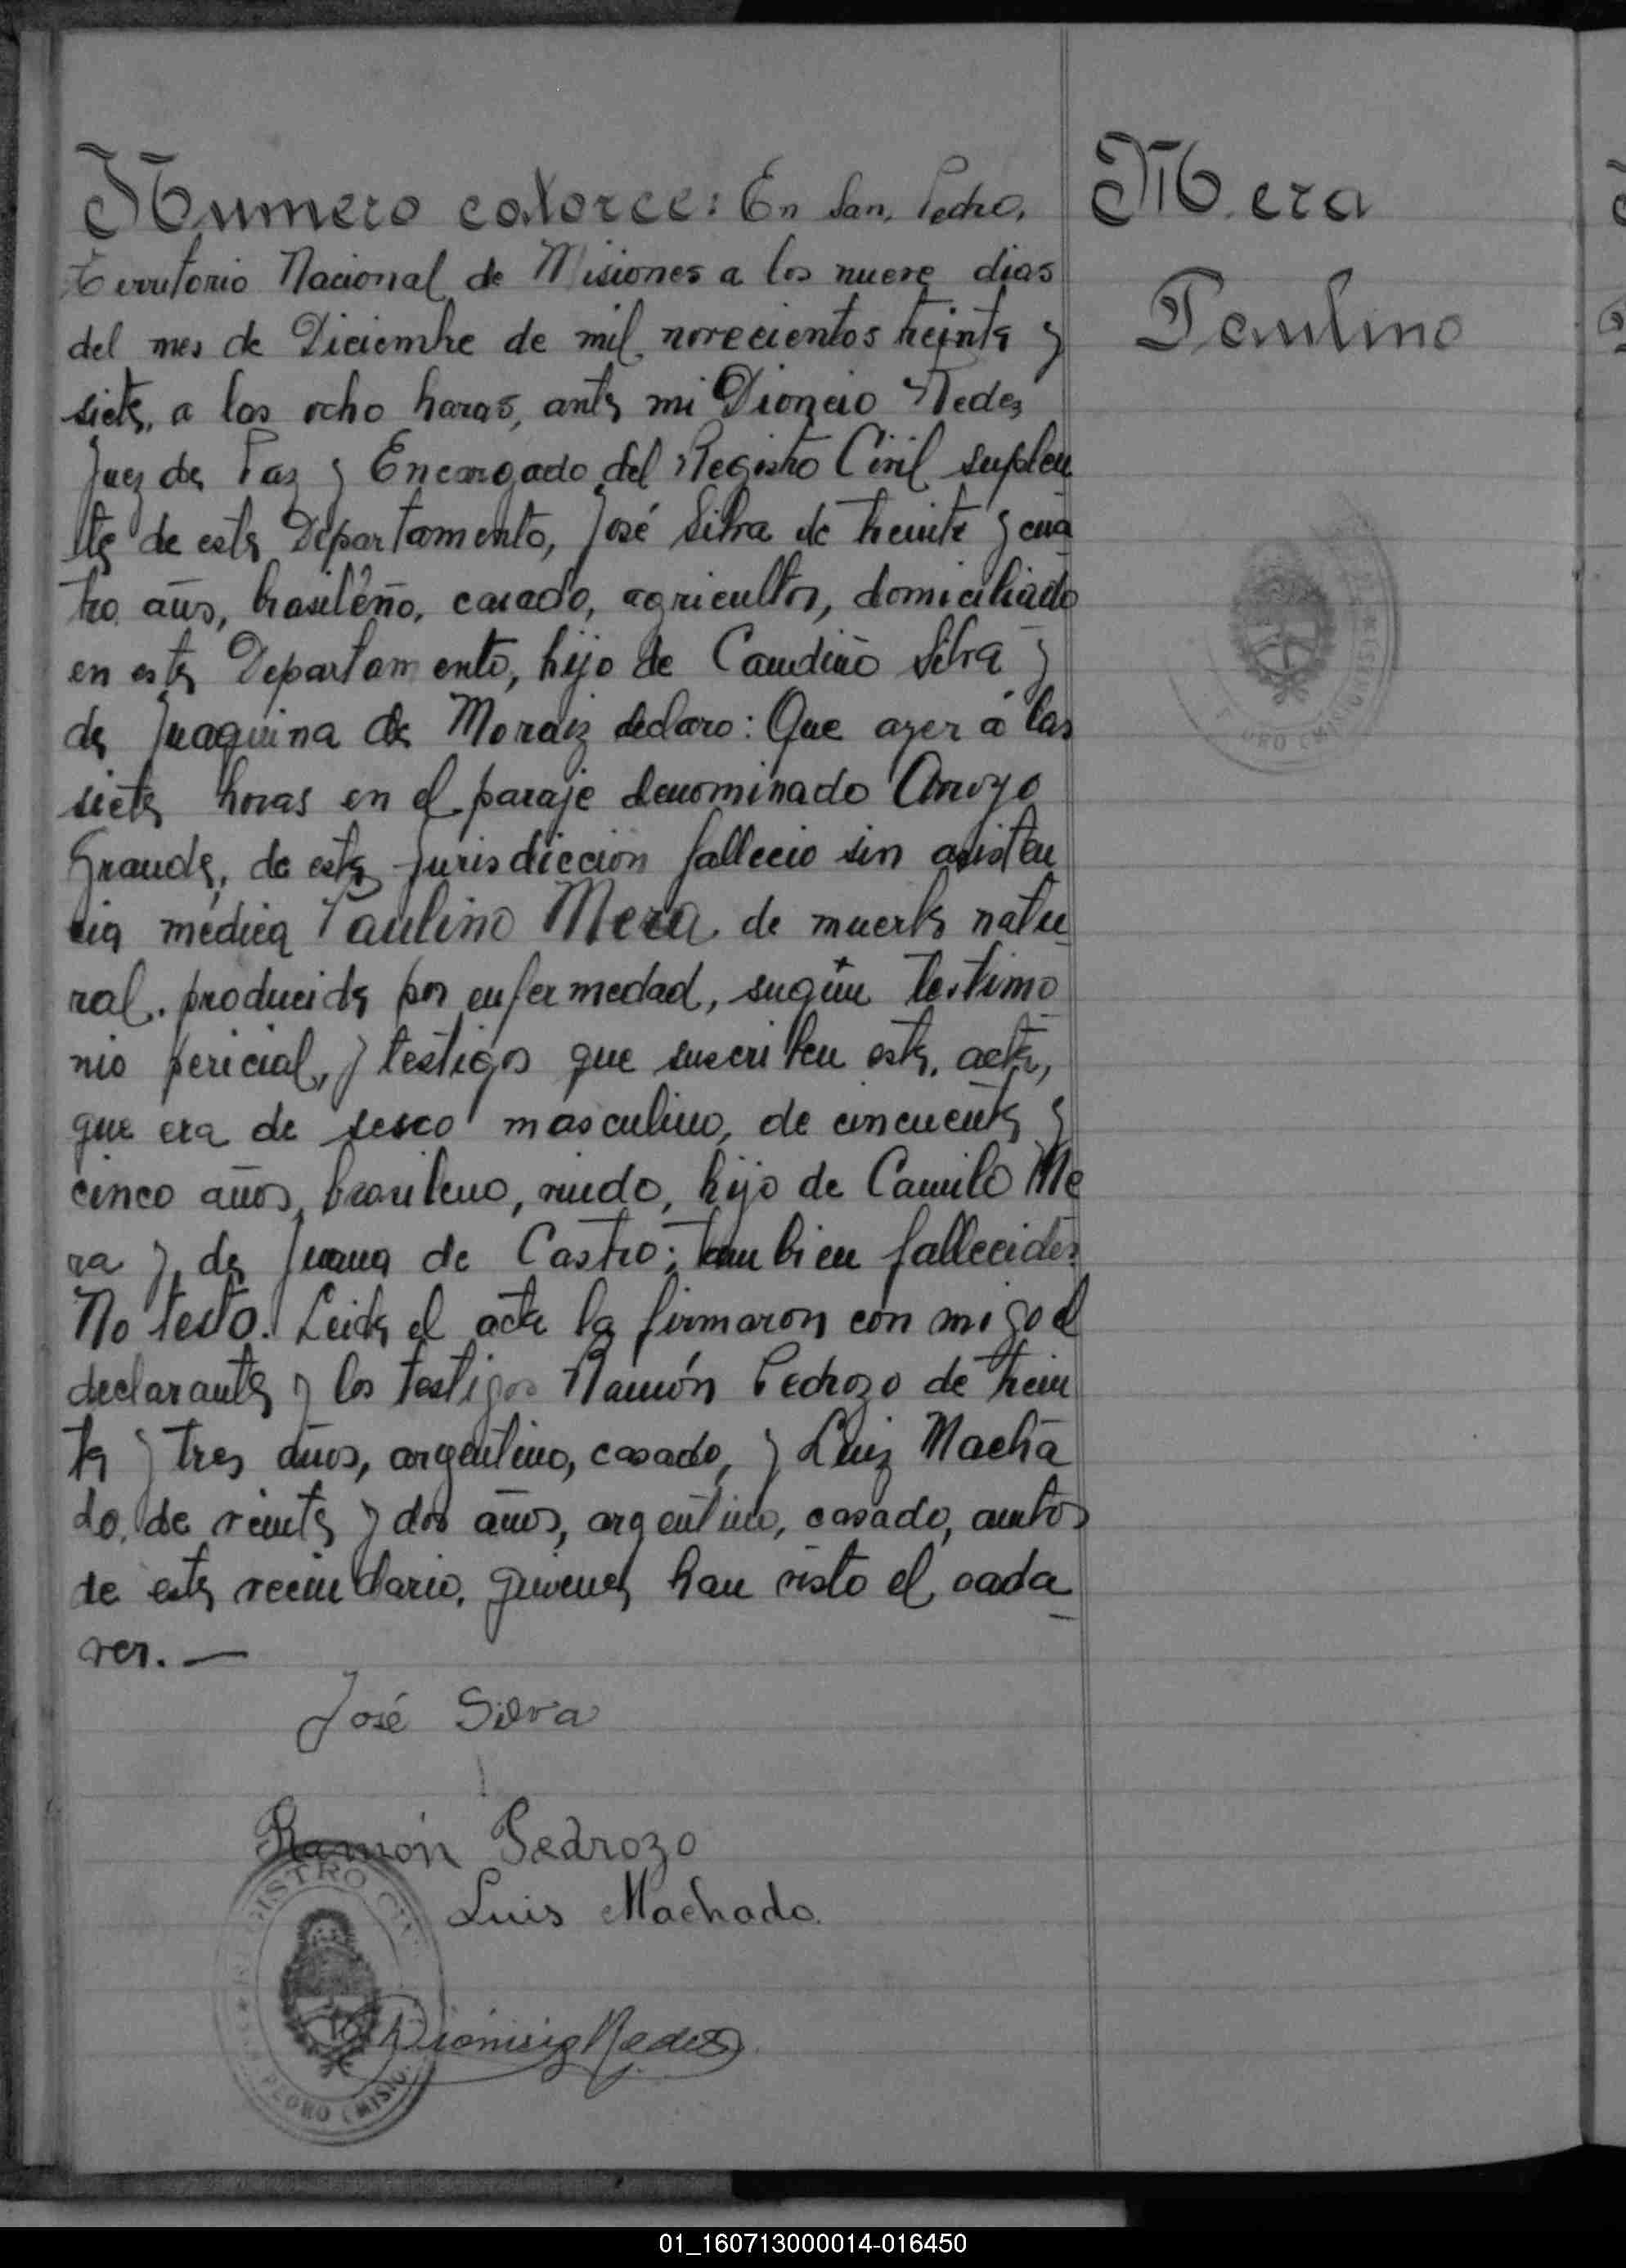 Numero catorce: En San Pedro,
Territorio Nacional de Misiones a los nueve dias
del mes de Diciembre de mil novecientos treinta y
siete, a las ocho horas, ante mi Dionicio Nedes
Juez de Paz y Encargado del Registro Civil suplen
te de este Departamento, José Silva de treinta y cua
tro años, brasileño, casado, agricultor, domiciliado
en este Departamento, hijo de Candiño Silva y
de Juaquina de Moraiz declaro: Que ayer á las
siete horas en el paraje denominado Arroyo
Grande, de esta Jurisdiccion fallecio sin asisten
cia médica Paulino Mera de muerte natu
ral. producida por enfermedad, sugún testimo
nio pericial, y testigos que suscriben esta acta,
que era de sesco masculino, de cincuenta y
cinco años, brasileno, viudo, hijo de Camilo Me
ra y de Juana de Castro; tambien fallecidos.
No testo. Leida el acta la firmaron con migo el
declarante y los testigos Ramón Pedrozo de trein
ta y tres años, argentino, casado, y Luiz Macha
do, de veinte y dos años, argentino, casado, ambos
de este vecindario, quienes han visto el cada
ver. —
José Silva
Ramón Pedrozo
Luis Machado.
Dionisio Nedes
REGISTRO CIVIL
PEDRO (MISIO
Mera
Paulino
DRO (MISIONES)
01_160713000014-016450